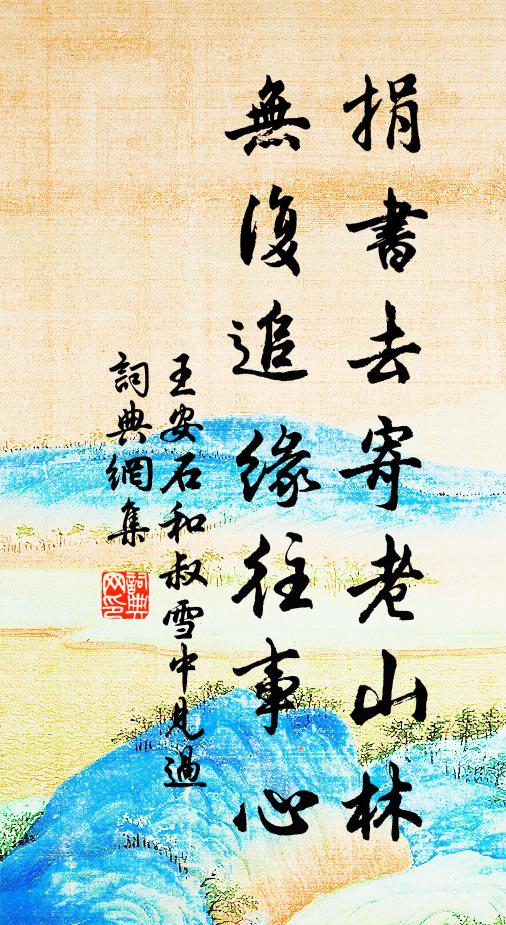 捐書去寄老山林
無復追緣往事心
王安石和叔雪中見過
詞典網集
詞典
网印